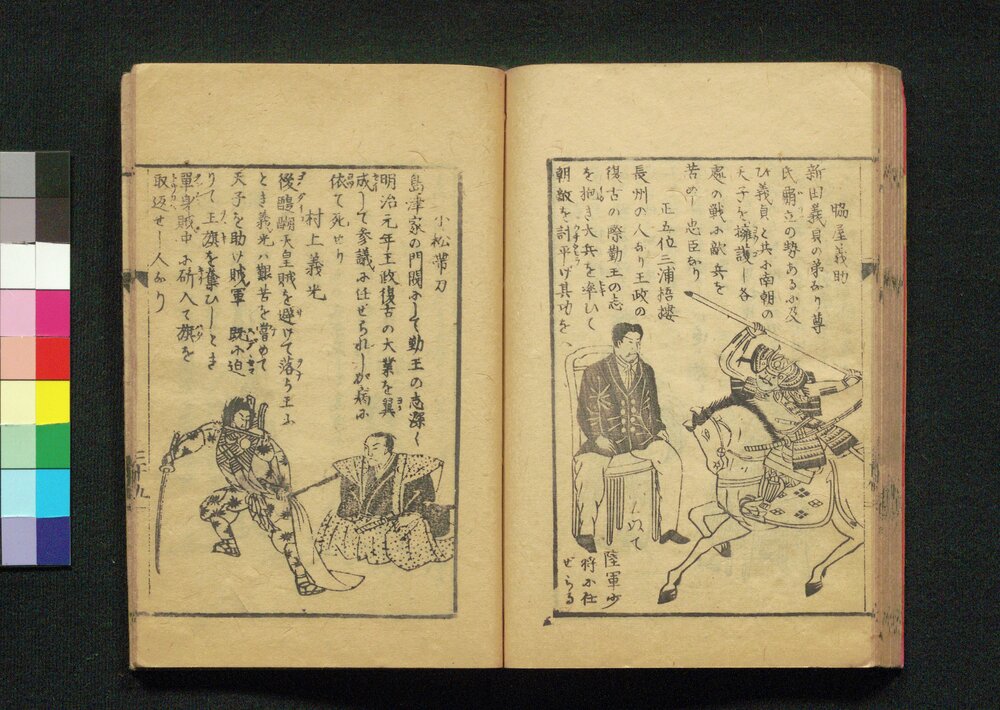 脇屋義助
新田義貞の弟なり尊
氏廟立の勢あるに及
ひ義貞と共に南朝の
天子を擁護し各
處の戦に敵兵を
苦めし忠臣なり
正五位三浦梧楼
長州の人なり王政の
復古の際勤王の志
を抱き大兵を率いて
朝敵を討平げ其功を
以て
陸軍少
将に任
ぜらる
小松帯刀
島津家の門閥にして勤王の志深く
明治元年王政復古の大業を翼
成して参議に任ぜられしが病に
依て死せり
村上義光
後醍醐天皇賊を避けて落ち玉ふ
とき義光ハ艱苦を嘗めて
天子を助け賊軍既に迫
りて王旗を奪ひしとき
單身賊中に斫入て旗を
取返せし人なり
三十九